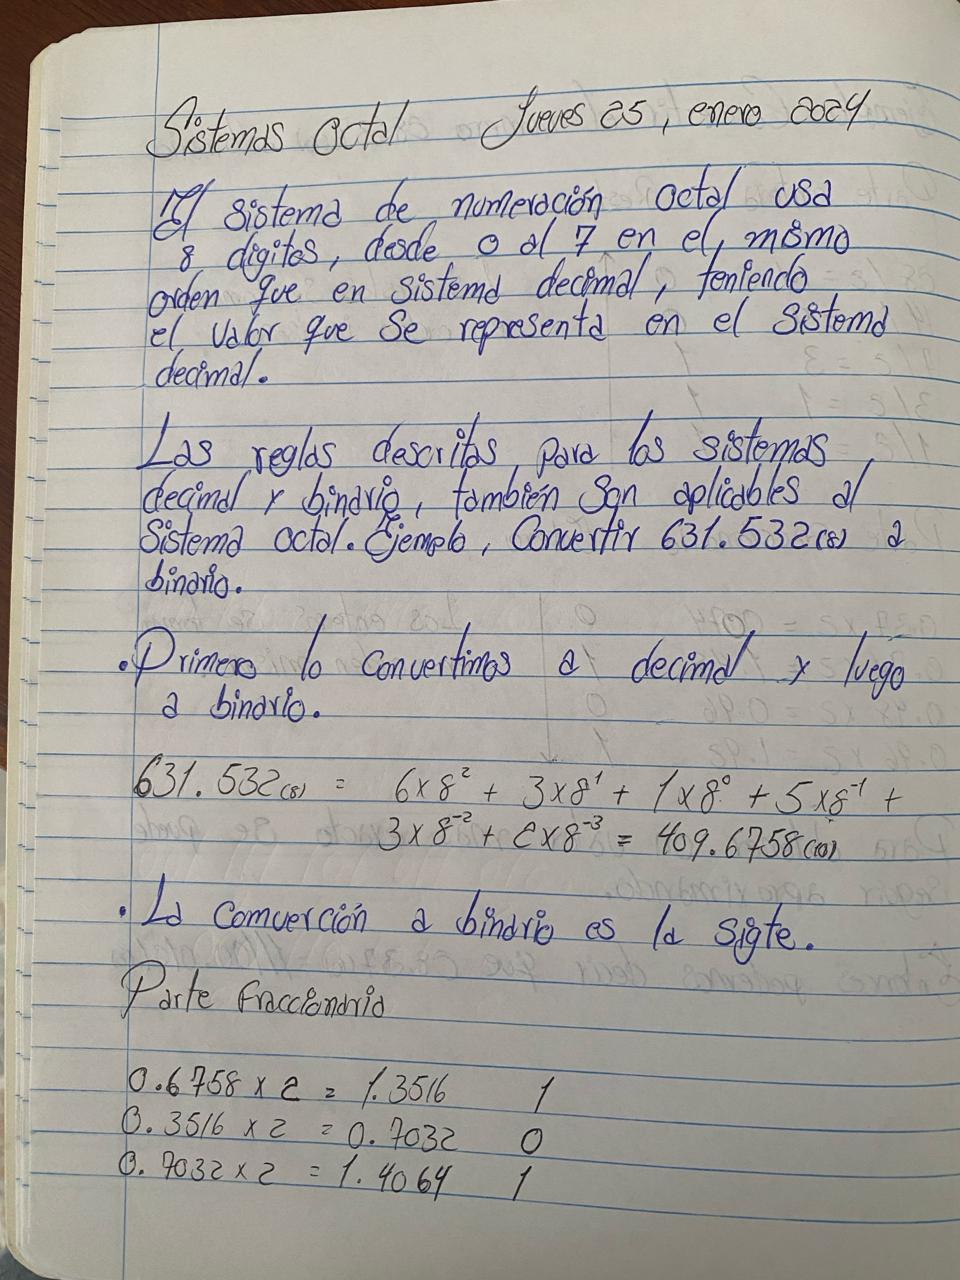 Sistemas Octal Jueves 25, enero 2024
El sistema de numeración octal usa
8 digitos, desde 0 al 7 en el mismo
orden que en sistema decimal, teniendo
el valor que se representa en el sistema
decimal.
Las reglas descritas para los sistemas
decimal y binario, también son aplicables al
sistema octal. Ejemplo, Convertir 631.532(8) a
binario.
• Primero lo convertimos a decimal y luego
a binario.
631.532(8) = 6x8² + 3x8¹ + 1x8⁰ + 5x8⁻¹ +
3x8⁻² + 2x8⁻³ = 409.6758(10)
• La comverción a binario es la sigte.
Parte fraccionaria
0.6758 x 2 = 1.3516 1
0.3516 x 2 = 0.7032 0
0.7032 x 2 = 1.4064 1